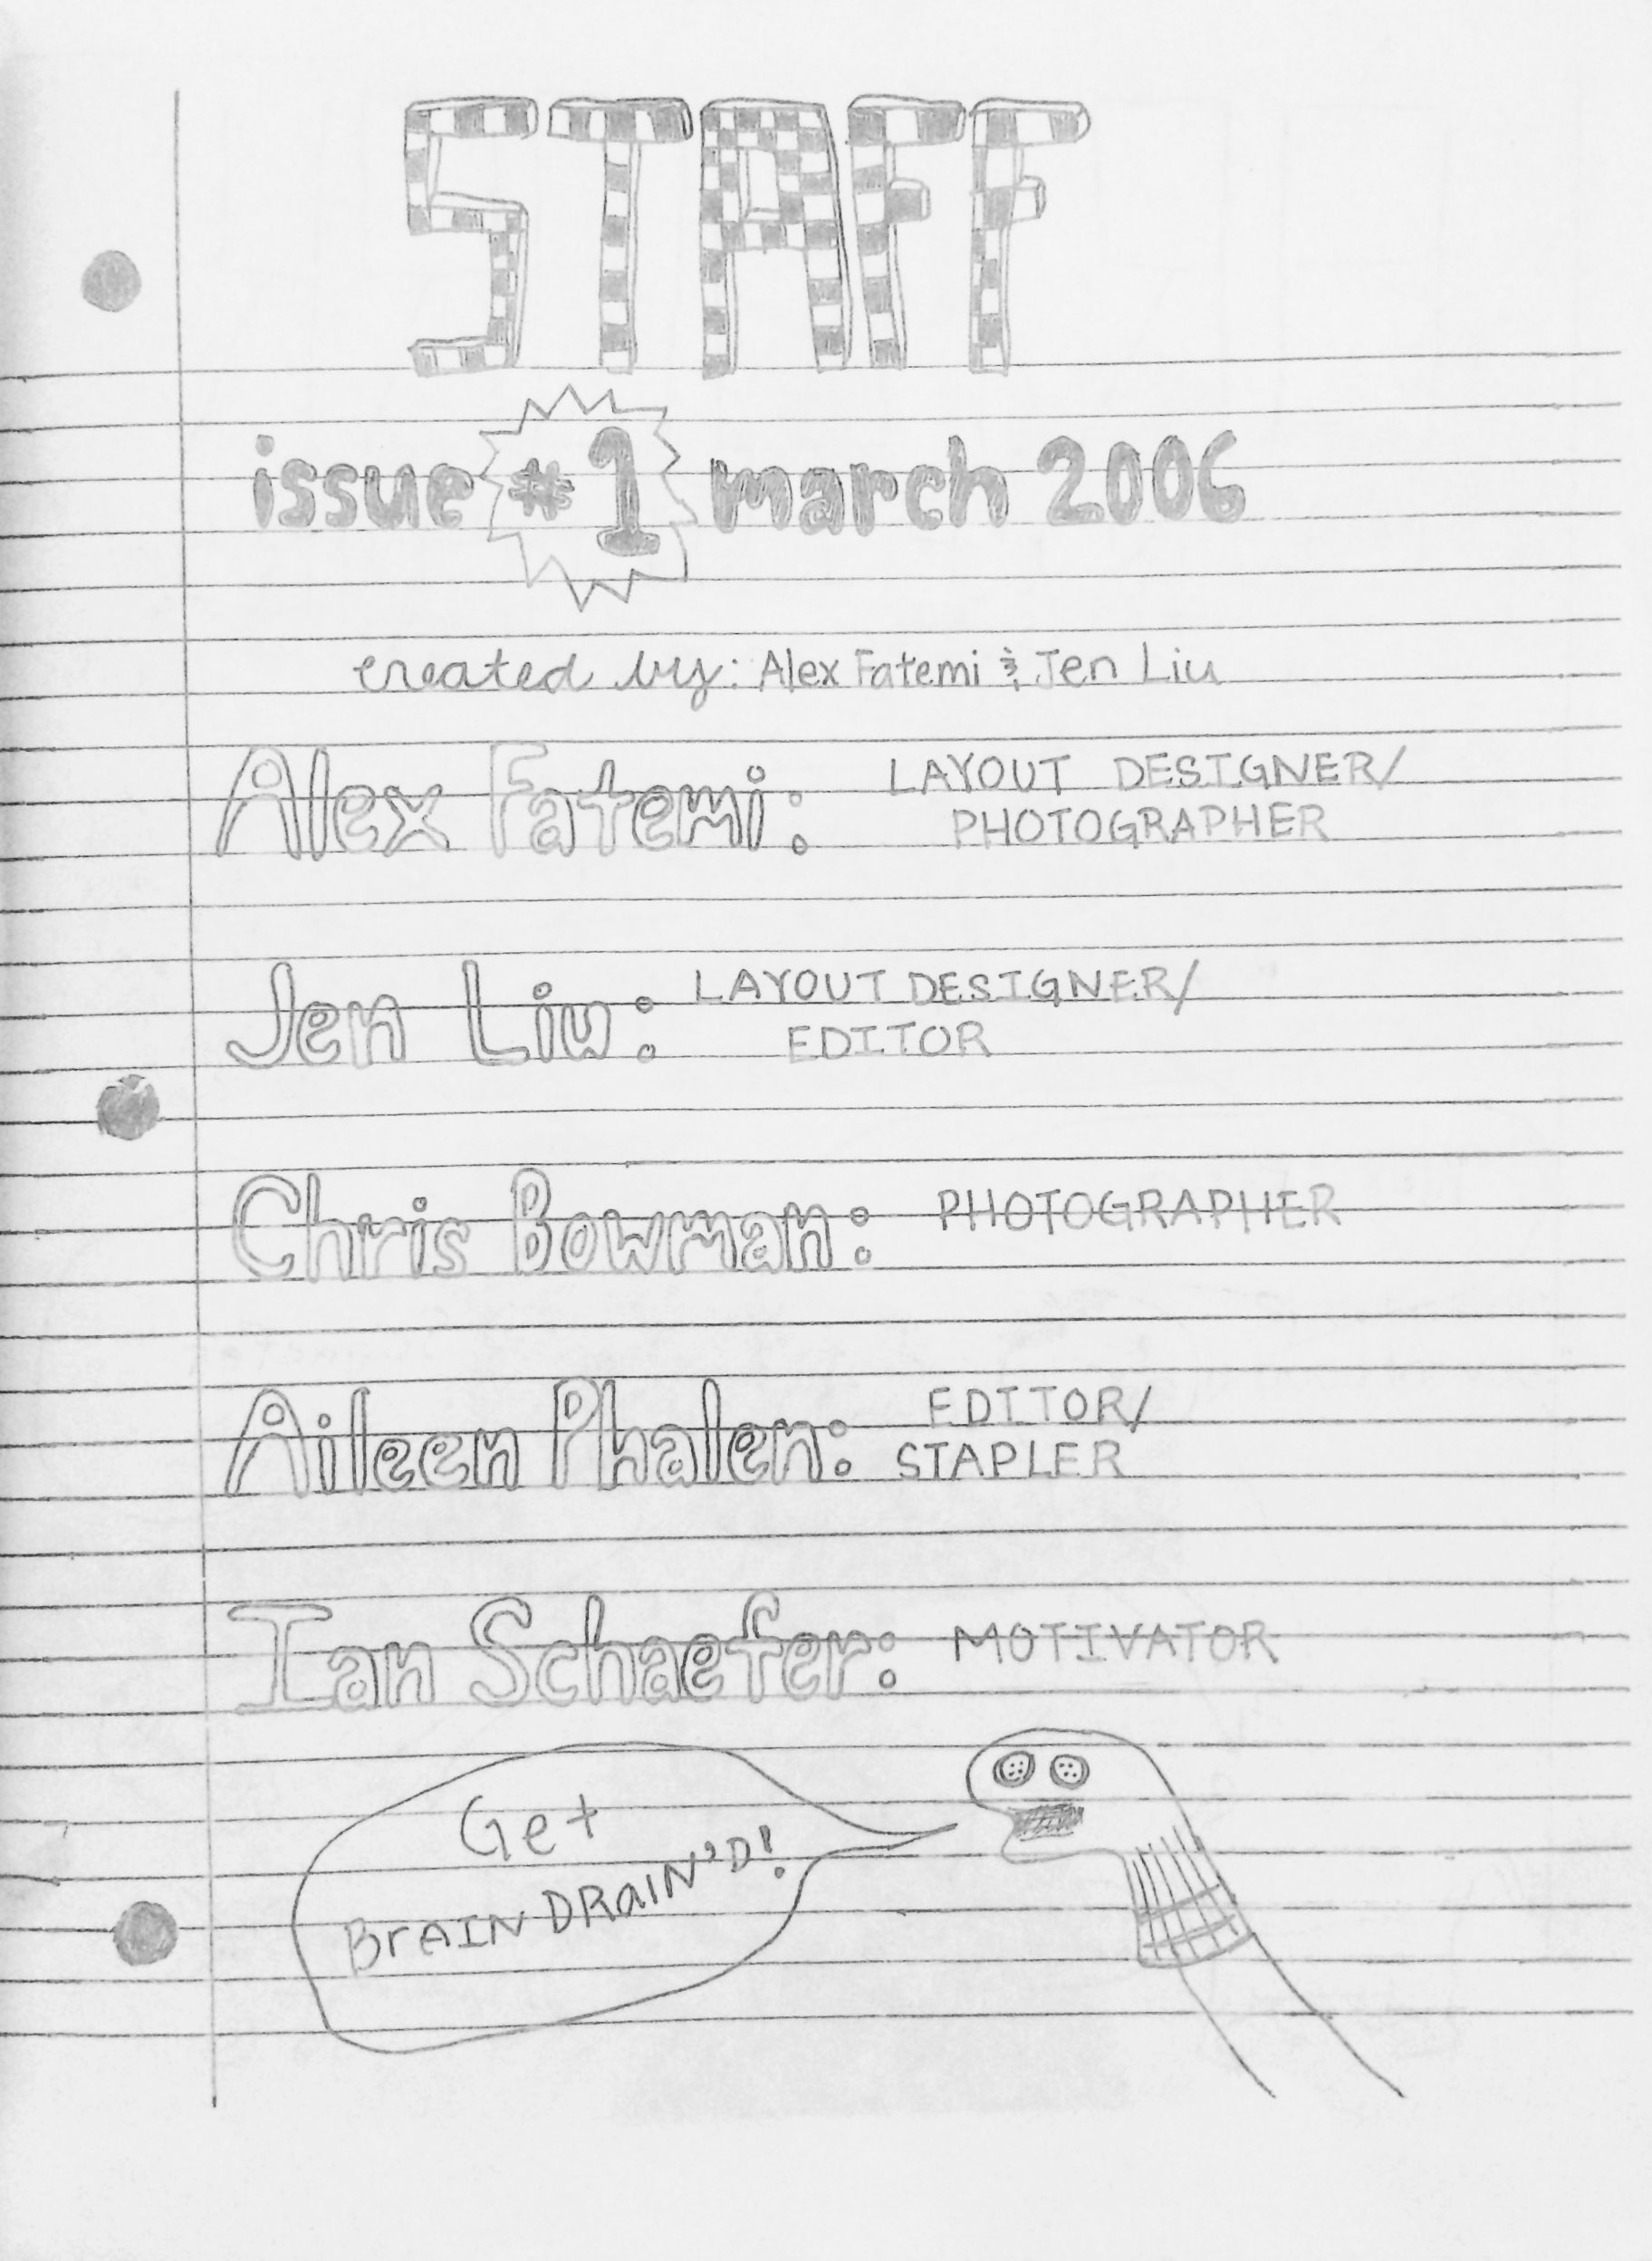 STAFF
issue #1 march 2006
created by: Alex Fatemi & Jen Liu
Alex Fatemi: LAYOUT DESIGNER/
PHOTOGRAPHER
Jen Liu: LAYOUT DESIGNER/
EDITOR
Chris Bowman: PHOTOGRAPHER
Aileen Phalen: EDITOR/
STAPLER
Ian Schaefer: MOTIVATOR
Get
BrAIN DRaIN'D!